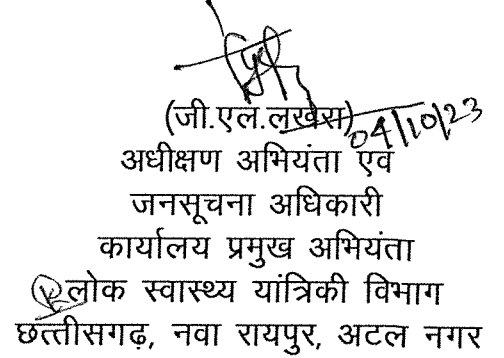 (जी.एल.लखेरा)
04/10/23
अधीक्षण अभियंता एवं
जनसूचना अधिकारी
कार्यालय प्रमुख अभियंता
लोक स्वास्थ्य यांत्रिकी विभाग
छत्तीसगढ़, नवा रायपुर, अटल नगर